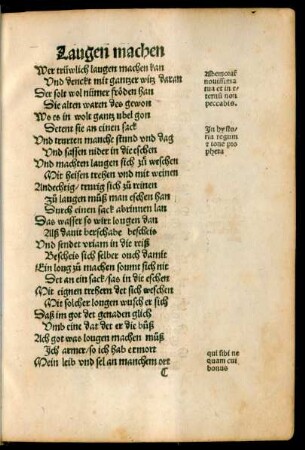 Laugen machen
Wer trüwlich laugen machen kan
Vnd denckt mit gantzer witz daran
Der solt wol nümer fröden han
Sie alten waren des gewon
Wo es in wolt gantz übel gon
Setent sie an einen sack
Vnd trurten manche stund vnd dag
Vnd sassen nider in die eschen
Vnd machten laugen sich zů weschen
Mit heissen trehen vnd mit weinen
Andechtig/ trurig sich zů reinen
Zů laugen můß man eschen han
Durch einen sack abrinnen lan
Das wasser so wirt lougen dan
Alß dauit berschabe bescheis
Vnd sendet vriam in die reiß
Bescheis sich selber ouch damit
Ein loug zů machen sumt sich nit
Set an ein sack/ sas in die eschen
Mit eignen trehern det sich weschen
Mit solcher lougen wusch er sich
Daß im got der genaden glich
Vmb eine dat det er die bůß
Ach got was lougen machen můß
Ich armer/ so ich hab ermort
Mein leib vnd sel an manchem ort
C
Memorare
nouissima
tua et in e-
ternũ non
peccabis.
In hysto-
ria regum
et ione pro
pheta
qui sibi ne
quam cui
bonus